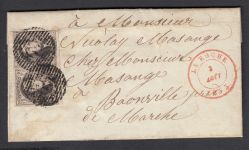 à Monsieur
Nicolay Masange
chez Monsieur
Masange
à Baonville
de Marche
LAROCHE
2
AOUT